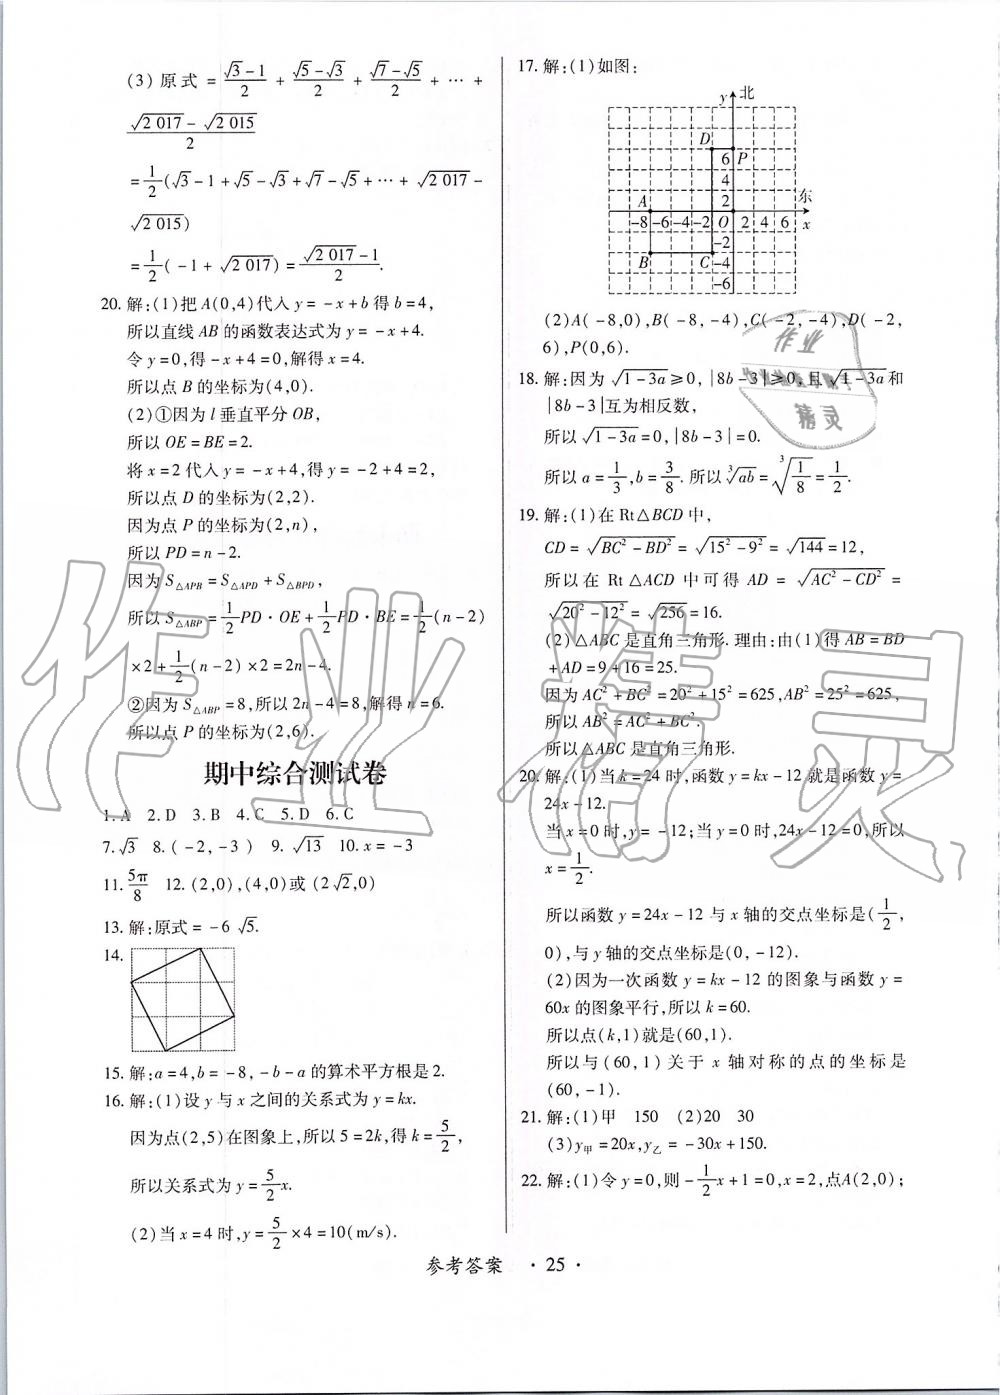 (3)原式=(√3-1)/2+(√5-√3)/2+(√7-√5)/2+…+
(√2 017-√2 015)/2
=1/2(√3-1+√5-√3+√7-√5+…+√2 017-
√2 015)
=1/2(-1+√2 017)=(√2 017-1)/2.
20.解:(1)把A(0,4)代入y=-x+b得b=4,
所以直线AB的函数表达式为y=-x+4.
令y=0,得-x+4=0,解得x=4.
所以点B的坐标为(4,0).
(2)①因为l垂直平分OB,
所以OE=BE=2.
将x=2代入y=-x+4,得y=-2+4=2,
所以点D的坐标为(2,2).
因为点P的坐标为(2,n),
所以PD=n-2.
因为S△APB=S△APD+S△BPD,
所以S△ABP=1/2PD·OE+1/2PD·BE=1/2(n-2)
×2+1/2(n-2)×2=2n-4.
②因为S△ABP=8,所以2n-4=8,解得n=6.
所以点P的坐标为(2,6).
期中综合测试卷
1.A 2.D 3.B 4.C 5.D 6.C
7.√3 8.(-2,-3) 9.√13 10.x=-3
11.5π/8 12.(2,0),(4,0)或(2√2,0)
13.解:原式=-6√5.
14.
15.解:a=4,b=-8,-b-a的算术平方根是2.
16.解:(1)设y与x之间的关系式为y=kx.
因为点(2,5)在图象上,所以5=2k,得k=5/2,
所以关系式为y=5/2x.
(2)当x=4时,y=5/2×4=10(m/s).
17.解:(1)如图:
y 北
D 6 P
4
2 东
A
-8 -6 -4 -2 O 2 4 6 x
-2
B C -4
-6
(2)A(-8,0),B(-8,-4),C(-2,-4),D(-2,
6),P(0,6).
18.解:因为√1-3a≥0,|8b-3|≥0,且√1-3a和
|8b-3|互为相反数,
所以√1-3a=0,|8b-3|=0.
所以a=1/3,b=3/8.所以∛ab=∛1/8=1/2.
19.解:(1)在Rt△BCD中,
CD=√BC²-BD²=√15²-9²=√144=12,
所以在Rt△ACD中可得AD=√AC²-CD²=
√20²-12²=√256=16.
(2)△ABC是直角三角形.理由:由(1)得AB=BD
+AD=9+16=25.
因为AC²+BC²=20²+15²=625,AB²=25²=625,
所以AB²=AC²+BC².
所以△ABC是直角三角形.
20.解:(1)当k=24时,函数y=kx-12就是函数y=
24x-12.
当x=0时,y=-12;当y=0时,24x-12=0,所以
x=1/2.
所以函数y=24x-12与x轴的交点坐标是(1/2,
0),与y轴的交点坐标是(0,-12).
(2)因为一次函数y=kx-12的图象与函数y=
60x的图象平行,所以k=60.
所以点(k,1)就是(60,1).
所以与(60,1)关于x轴对称的点的坐标是
(60,-1).
21.解:(1)甲 150 (2)20 30
(3)y甲=20x,y乙=-30x+150.
22.解:(1)令y=0,则-1/2x+1=0,x=2,点A(2,0);
参考答案 ·25·
作业精灵
作业
精灵